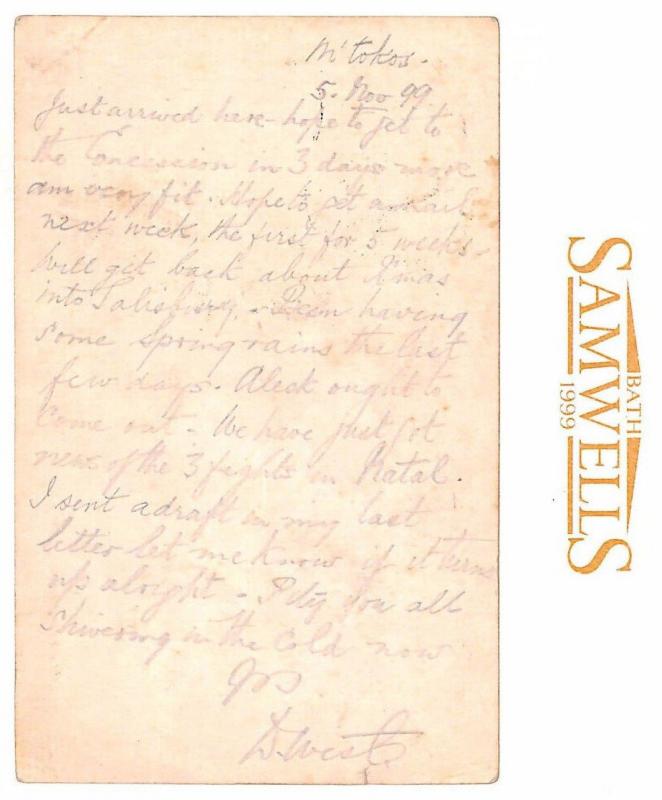 M'tokos.
5. Nov 99
Just arrived here - hope to get to
the Concession in 3 days more
am very fit. Hope to get a mail
next week, the first for 5 weeks -
Will get back about Xmas
into Salisbury. - Been having
some Spring rains the last
few days. Aleck ought to
Come out - We have just got
news of the 3 fights in Natal.
I sent a draft in my last
letter let me know if it turns
up alright - Pity you all
Shivering in the Cold now
Yrs
D. West.
SAMWELLS
BATH
1999